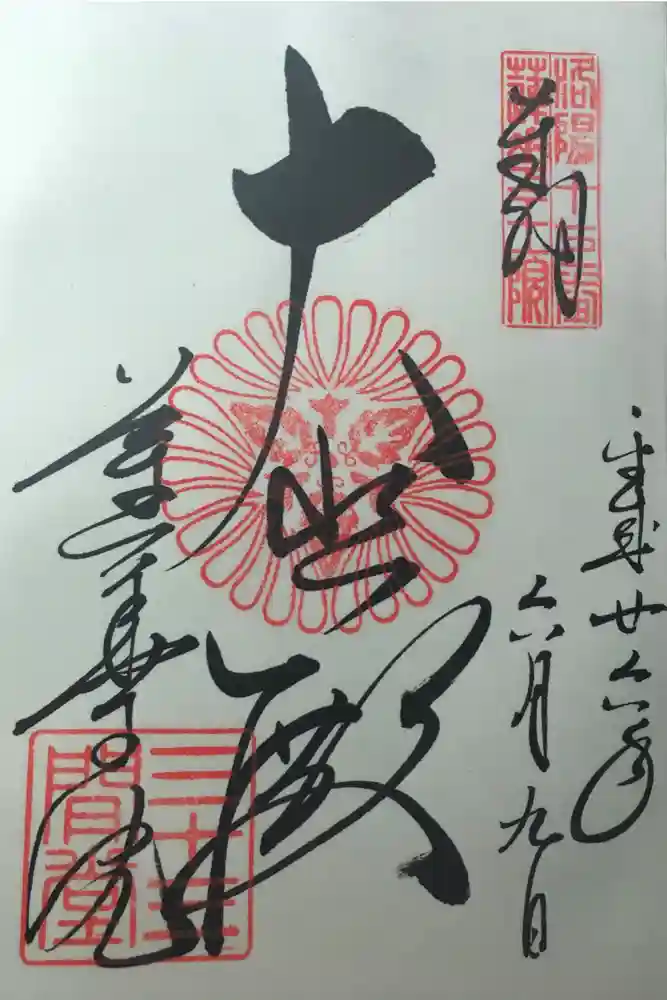 洛陽十七番
蓮華王院
奉拝
平成廿六年
六月九日
大悲殿
蓮華王院
三十三
間堂